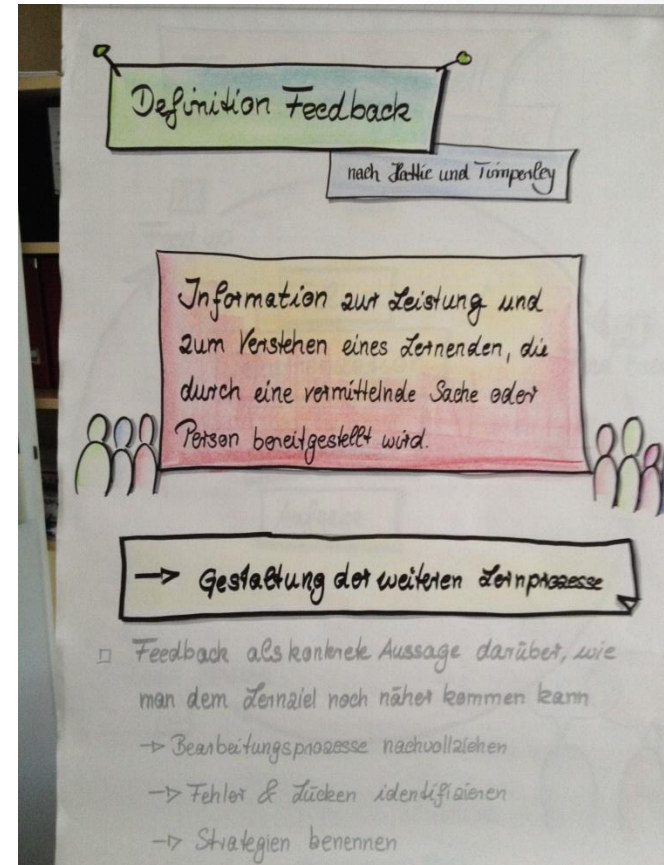 Definition Feedback
nach Hattie und Timperley
Information zur Leistung und
zum Verstehen eines Lernenden, die
durch eine vermittelnde Sache oder
Person bereitgestellt wird.
→ Gestaltung der weiteren Lernprozesse
□ Feedback als konkrete Aussage darüber, wie
man dem Lernziel noch näher kommen kann
→ Bearbeitungsprozesse nachvollziehen
→ Fehler & Lücken identifizieren
→ Strategien benennen